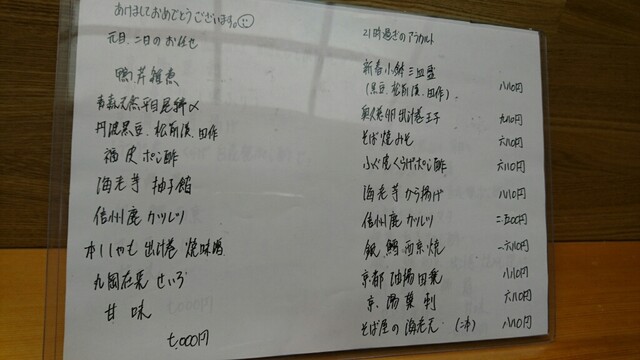 あけましておめでとうございます。
元旦、二日のお任せ
鴨芹雑煮
青森天然平目昆布〆
丹波黒豆、松前漬、田作
福皮ポン酢
海老芋 柚子餡
信州鹿カツレツ
本ししゃも 出汁巻 焼味噌
丸岡在来 せいろ
甘味
七,000円
21時過ぎのアラカルト
新春小鉢三皿盛
(黒豆、松前漬、田作) 八八〇円
奥久慈卵出汁巻玉子 九八〇円
そば焼みそ 六八〇円
ふぐ皮くらげポン酢 六八〇円
海老芋から揚げ 八八〇円
信州鹿カツレツ 二五〇〇円
銀鱈西京焼 一六八〇円
京都油揚田楽 八八〇円
京湯葉刺 六八〇円
そば屋の海老天 (二本) 八八〇円